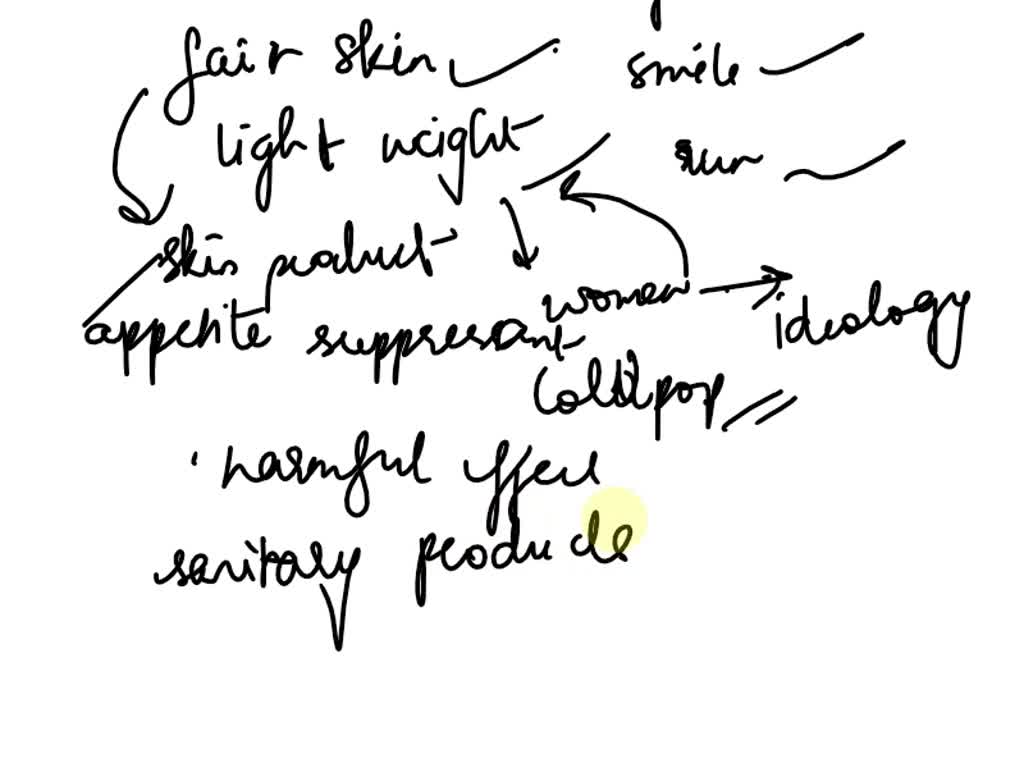 fair skin smile
light weight run
skin product
women ideology
appetite suppressant
lollipop
harmful effect
sanitary products